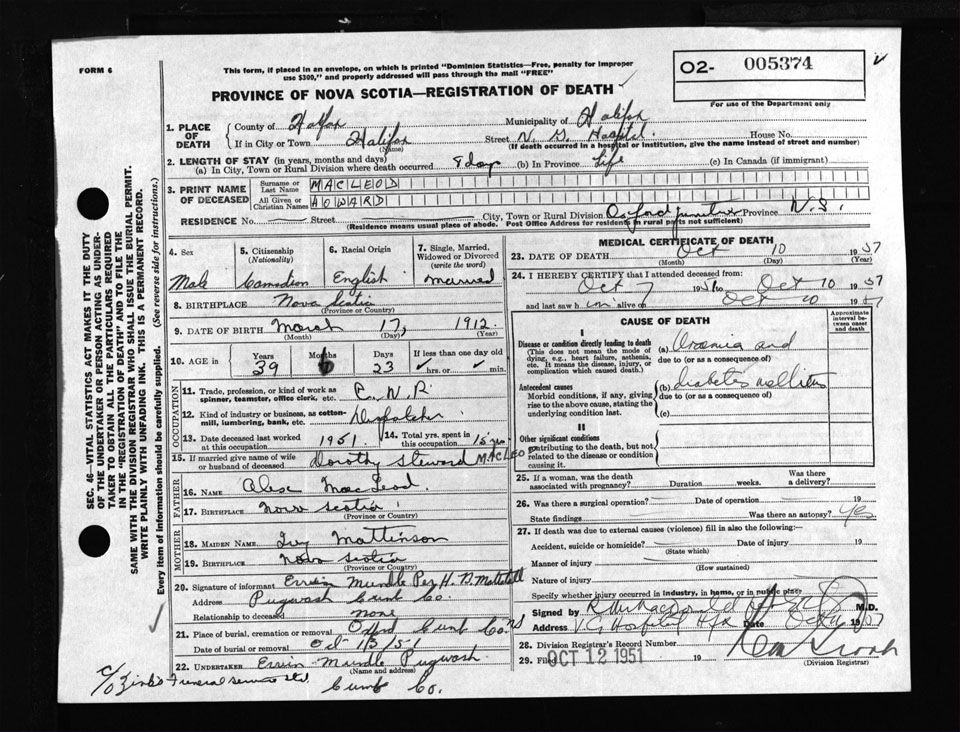 FORM 6
This form, if placed in an envelope, on which is printed "Dominion Statistics—Free, penalty for improper
use $300," and properly addressed will pass through the mail "FREE"
PROVINCE OF NOVA SCOTIA—REGISTRATION OF DEATH
O2- 005374
For use of the Department only
1. PLACE OF DEATH
County of Halifax Municipality of Halifax
If in City or Town Halifax Street V. G. Hospital. House No.
(Name) (If death occurred in a hospital or institution, give the name instead of street and number)
2. LENGTH OF STAY (in years, months and days)
(a) In City, Town or Rural Division where death occurred 4 days (b) In Province Life (c) In Canada (if immigrant)
3. PRINT NAME OF DECEASED
Surname or Last Name MACLEOD
All Given or Christian Names HOWARD
RESIDENCE No. Street City, Town or Rural Division Oxford Junction Province N.S.
(Residence means usual place of abode. Post Office Address for residents in rural parts not sufficient)
4. Sex
Male
5. Citizenship
(Nationality)
Canadian
6. Racial Origin
English
7. Single, Married, Widowed or Divorced
(write the word)
married
8. BIRTHPLACE Nova Scotia
(Province or Country)
9. DATE OF BIRTH March 17, 1912
(Month) (Day) (Year)
10. AGE in Years Months Days If less than one day old
39 6 23 hrs. or min.
OCCUPATION
11. Trade, profession, or kind of work as
spinner, teamster, office clerk, etc. C. N. R.
12. Kind of industry or business, as cotton-
mill, lumbering, bank, etc. Dispatcher
13. Date deceased last worked
at this occupation 1951.
14. Total yrs. spent in
this occupation 15 yrs
15. If married give name of wife
or husband of deceased Dorothy Steward MACLEOD
FATHER
16. NAME Alex MacLeod.
17. BIRTHPLACE Nova Scotia
(Province or Country)
MOTHER
18. MAIDEN NAME Ivy Mattinson
19. BIRTHPLACE Nova Scotia
(Province or Country)
20. Signature of informant Mundle Per H. B.
Address Pugwash Cumb Co.
Relationship to deceased none
21. Place of burial, cremation or removal Oxford Cumb Co NS
Date of burial or removal Oct 13/51
22. UNDERTAKER Mundle Pugwash
(Name and address)
Cumb Co.
c/o Zink's Funeral service Ltd.
MEDICAL CERTIFICATE OF DEATH
23. DATE OF DEATH Oct 10 1951
(Month) (Day) (Year)
24. I HEREBY CERTIFY that I attended deceased from:
Oct 7 1951 to Oct 10 1951
and last saw him alive on Oct 10 1951
CAUSE OF DEATH
Approximate interval between onset and death
I
Disease or condition directly leading to death
(This does not mean the mode of
dying, e.g., heart failure, asthenia,
etc. It means the disease, injury, or
complication which caused death.)
(a) Uraemia and
due to (or as a consequence of)
Antecedent causes
Morbid conditions, if any, giving
rise to the above cause, stating the
underlying condition last.
(b) diabetes mellitus
due to (or as a consequence of)
(c)
II
Other significant conditions
contributing to the death, but not
related to the disease or condition
causing it.
25. If a woman, was the death
associated with pregnancy? Duration weeks. Was there a delivery?
26. Was there a surgical operation? Date of operation 19
State findings Was there an autopsy? Yes
27. If death was due to external causes (violence) fill in also the following:—
Accident, suicide or homicide? Date of injury 19
(State which)
Manner of injury
(How sustained)
Nature of injury
Specify whether injury occurred in industry, in home, or in public place
Signed by MacDonald M.D.
Address V.G Hospital Hfx Date Oct 1951
28. Division Registrar's Record Number
29. Filed OCT 12 1951
(Division Registrar)
SEC. 46—VITAL STATISTICS ACT MAKES IT THE DUTY
OF THE UNDERTAKER OR PERSON ACTING AS UNDER-
TAKER TO OBTAIN ALL THE PARTICULARS REQUIRED
IN THE "REGISTRATION OF DEATH" AND TO FILE THE
SAME WITH THE DIVISION REGISTRAR WHO SHALL ISSUE THE BURIAL PERMIT.
WRITE PLAINLY WITH UNFADING INK. THIS IS A PERMANENT RECORD.
Every item of information should be carefully supplied. (See reverse side for instructions.)